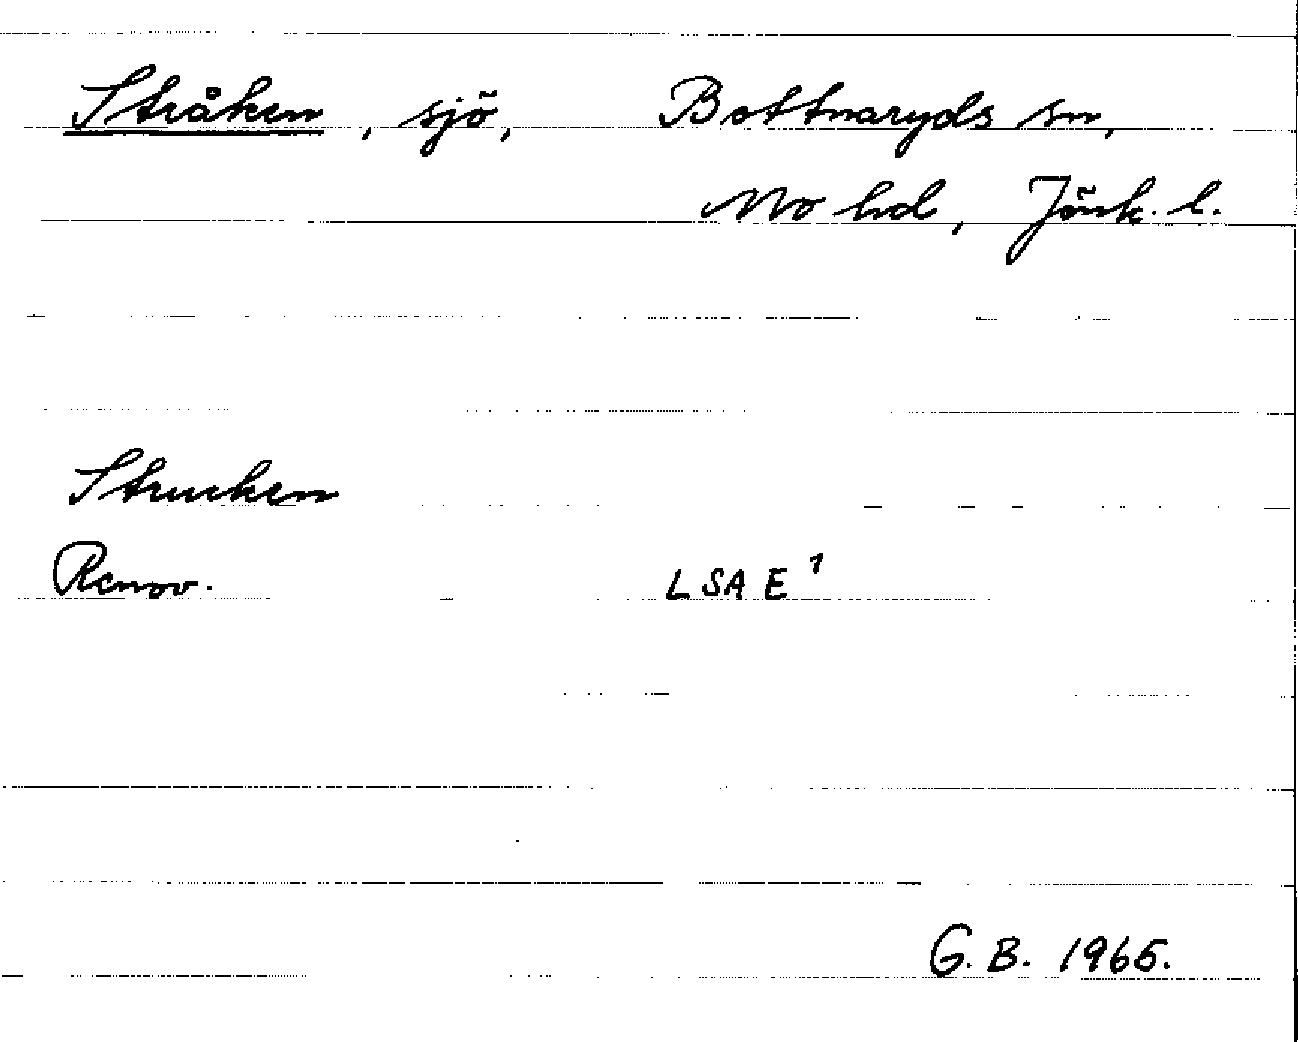 Stråken, sjö, Bottnaryds sn,
Mo hd, Jönk. l.
Strucken
Renov. LSA E¹
G. B. 1965.